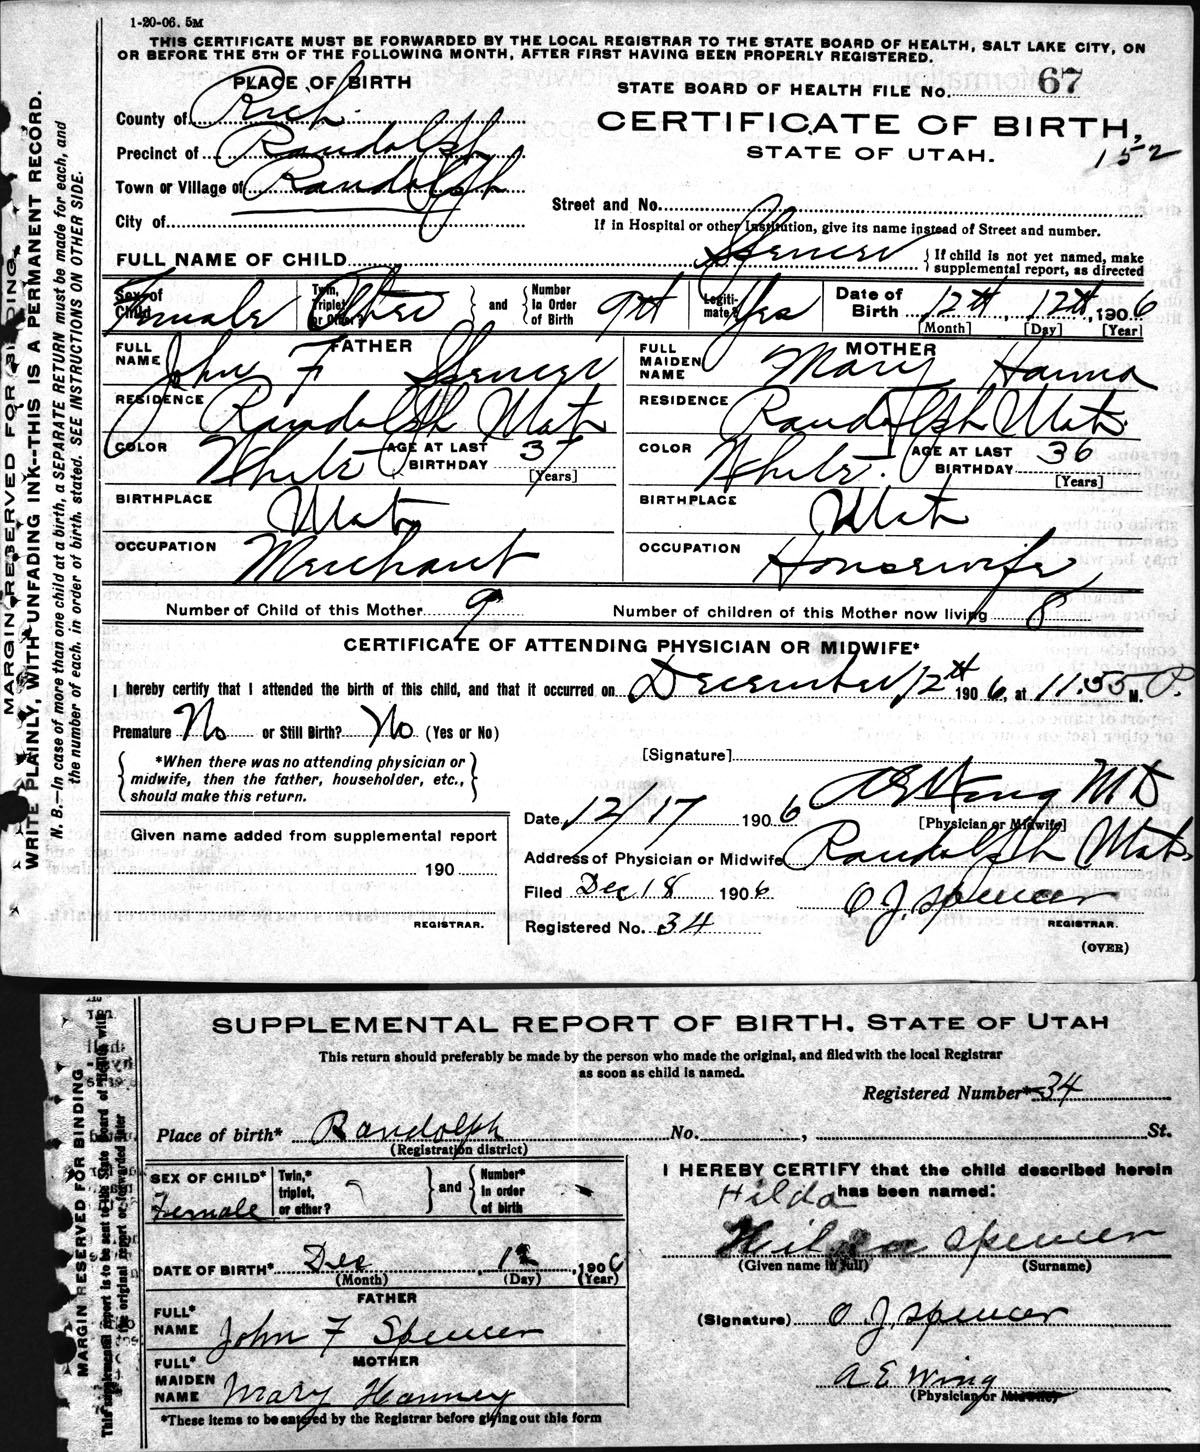 1-20-06. 5M
THIS CERTIFICATE MUST BE FORWARDED BY THE LOCAL REGISTRAR TO THE STATE BOARD OF HEALTH, SALT LAKE CITY, ON
OR BEFORE THE 5TH OF THE FOLLOWING MONTH, AFTER FIRST HAVING BEEN PROPERLY REGISTERED.
PLACE OF BIRTH
STATE BOARD OF HEALTH FILE No. 67
County of Rich
CERTIFICATE OF BIRTH,
Precinct of Randolph
STATE OF UTAH.
152
Town or Village of Randolph
Street and No.
City of
If in Hospital or other Institution, give its name instead of Street and number.
FULL NAME OF CHILD Spencer
If child is not yet named, make
supplemental report, as directed
Sex of Child Female
Twin, Triplet, or Other?
and
Number In Order of Birth 9th
Legiti-mate? Yes
Date of Birth 12th, 12th, 1906
[Month] [Day] [Year]
FATHER
FULL NAME John F Spencer
MOTHER
FULL MAIDEN NAME Mary Hanna
RESIDENCE Randolph Utah
RESIDENCE Randolph Utah
COLOR White AGE AT LAST BIRTHDAY 37 [Years]
COLOR White. AGE AT LAST BIRTHDAY 36 [Years]
BIRTHPLACE Utah
BIRTHPLACE Utah
OCCUPATION Merchant
OCCUPATION Housewife
Number of Child of this Mother 9
Number of children of this Mother now living 8
CERTIFICATE OF ATTENDING PHYSICIAN OR MIDWIFE*
I hereby certify that I attended the birth of this child, and that it occurred on December 12th 1906, at 11.55 P. M.
Premature No or Still Birth? No (Yes or No)
*When there was no attending physician or
midwife, then the father, householder, etc.,
should make this return.
[Signature]
A E Wing MD
[Physician or Midwife]
Date 12/17 1906
Given name added from supplemental report
190
REGISTRAR.
Address of Physician or Midwife Randolph Utah
Filed Dec 18 1906
O J. Spencer
REGISTRAR.
Registered No. 34
(OVER)
MARGIN RESERVED FOR BINDING
WRITE PLAINLY, WITH UNFADING INK--THIS IS A PERMANENT RECORD.
N. B.—In case of more than one child at a birth, a SEPARATE RETURN must be made for each, and
the number of each, in order of birth, stated. SEE INSTRUCTIONS ON OTHER SIDE.
SUPPLEMENTAL REPORT OF BIRTH. STATE OF UTAH
This return should preferably be made by the person who made the original, and filed with the local Registrar
as soon as child is named.
Registered Number* 34
Place of birth* Randolph No. , St.
(Registration district)
SEX OF CHILD* Female
Twin,* triplet, or other?
and
Number* In order of birth
I HEREBY CERTIFY that the child described herein
has been named:
Hilda
Hilda Spencer
(Given name in full) (Surname)
DATE OF BIRTH* Dec, 12, 1906
(Month) (Day) (Year)
FATHER
FULL* NAME John F Spencer
(Signature) O J. Spencer
MOTHER
FULL* MAIDEN NAME Mary Hanney
A E Wing
(Physician or Midwife)
*These items to be entered by the Registrar before giving out this form
MARGIN RESERVED FOR BINDING
This supplemental report is to be sent to the State Board of Health with
the original report or forwarded later